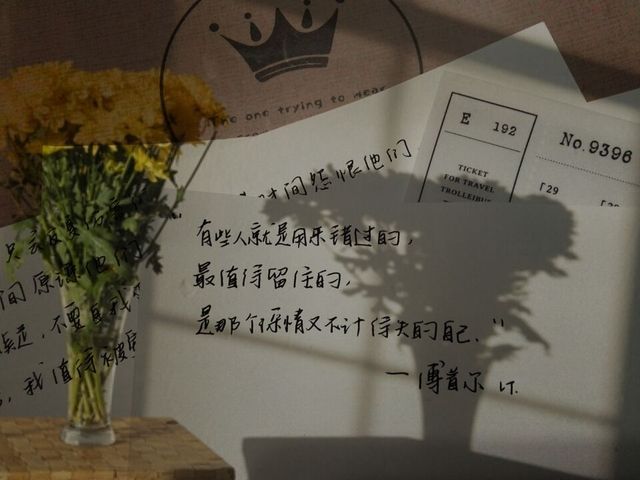 The one trying to wear
E 192
TICKET
FOR TRAVEL
No.9396
「29
时间怨恨他们
"有些人就是用来错过的,
最值得留住的,
是那个深情又不计得失的自己."
一傅首尔 LT.
间原谅他们
不要自我
,我值得被